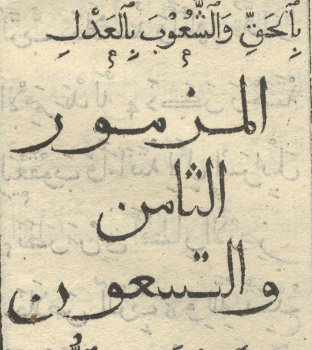 بِالحَقِّ وَالشُّعُوْبَ بِالعَدْلِ
المزمور
الثامن
والتسعون